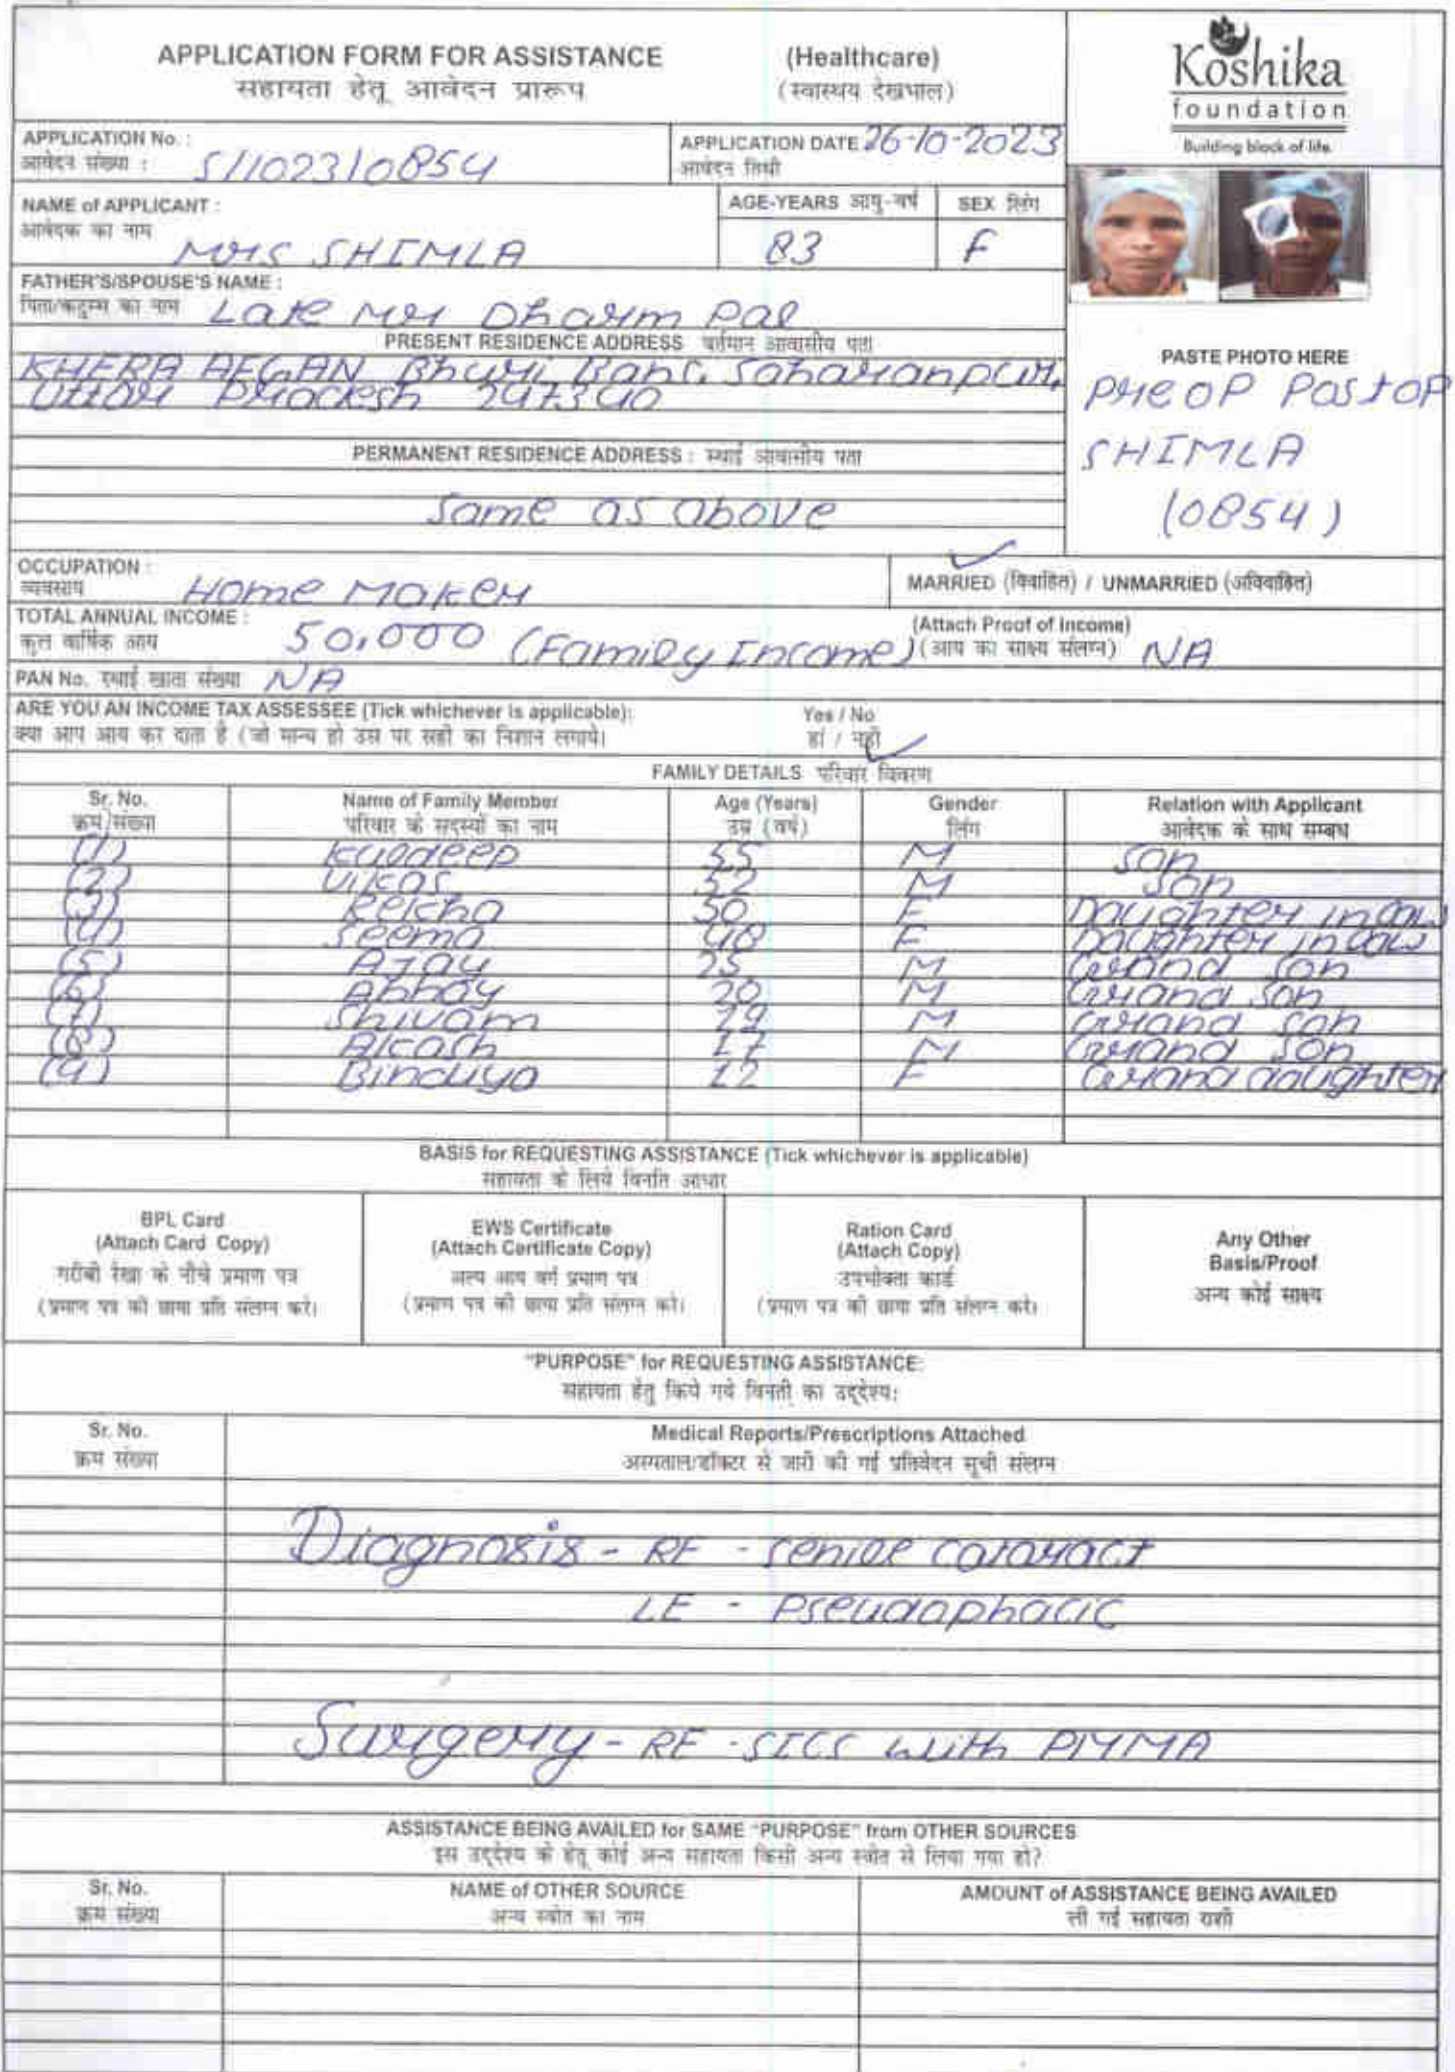 APPLICATION FORM FOR ASSISTANCE (Healthcare)
सहायता हेतू आवेदन प्रारूप (स्वास्थय देखभाल)
Koshika
foundation
Building block of life.
APPLICATION No. : S/102310854
आवेदन संख्या :
APPLICATION DATE 26-10-2023
आवेदन तिथी
NAME of APPLICANT : AGE-YEARS आयु-वर्ष SEX लिंग
आवेदक का नाम Mrs SHIMLA 83 F
FATHER'S/SPOUSE'S NAME :
Late Mr Dharm Pal
PRESENT RESIDENCE ADDRESS वर्तमान आवासीय पता
KHERA AFGAN Saharanpur,
Uttar Pradesh 247340
PASTE PHOTO HERE
Pre OP Post OP
SHIMLA
(0854)
PERMANENT RESIDENCE ADDRESS : स्थाई आवासीय पता
Same as above
OCCUPATION :
व्यवसाय Home Maker
MARRIED (विवाहित) / UNMARRIED (अविवाहित)
TOTAL ANNUAL INCOME : (Attach Proof of Income)
कुल वार्षिक आय 50,000 (Family Income) (आय का साक्ष्य संलग्न) NA
PAN No. स्थाई खाता संख्या NA
ARE YOU AN INCOME TAX ASSESSEE (Tick whichever is applicable): Yes / No
क्या आप आय कर दाता है (जो मान्य हो उस पर सही का निशान लगाये। हां / नहीं
FAMILY DETAILS परिवार विवरण
Sr. No. Name of Family Member Age (Years) Gender Relation with Applicant
क्रम संख्या परिवार के सदस्यों का नाम उम्र (वर्ष) लिंग आवेदक के साथ सम्बध
(1) Kuldeep 55 M Son
(2) Vikas 52 M Son
(3) Rekha 50 F Daughter in law
(4) Seema 48 F Daughter in law
(5) Ajay 25 M Grand son
(6) Abhay 20 M Grand son
(7) Shivam M Grand son
(8) Akash 17 M Grand son
(9) Bindiya 12 F Grand daughter
BASIS for REQUESTING ASSISTANCE (Tick whichever is applicable)
सहायता के लिये विनति आधार
BPL Card
(Attach Card Copy)
गरीबी रेखा के नीचे प्रमाण पत्र
(प्रमाण पत्र की छाया प्रति संलग्न करे।
EWS Certificate
(Attach Certificate Copy)
अल्प आय वर्ग प्रमाण पत्र
(प्रमाण पत्र की छाया प्रति संलग्न करे।
Ration Card
(Attach Copy)
उपभोक्ता कार्ड
(प्रमाण पत्र की छाया प्रति संलग्न करे।
Any Other
Basis/Proof
अन्य कोई साक्ष्य
"PURPOSE" for REQUESTING ASSISTANCE:
सहायता हेतु किये गये विनती का उद्देश्य:
Sr. No. Medical Reports/Prescriptions Attached
क्रम संख्या अस्पताल/डॉक्टर से जारी की गई प्रतिवेदन सूची संलग्न
Diagnosis - RE - Senile Cataract
LE - Pseudophacic
Surgery - RE - SICS with PMMA
ASSISTANCE BEING AVAILED for SAME "PURPOSE" from OTHER SOURCES
इस उद्देश्य के हेतू कोई अन्य सहायता किसी अन्य स्त्रोत से लिया गया हो?
Sr. No. NAME of OTHER SOURCE AMOUNT of ASSISTANCE BEING AVAILED
क्रम संख्या अन्य स्त्रोत का नाम ली गई सहायता राशी